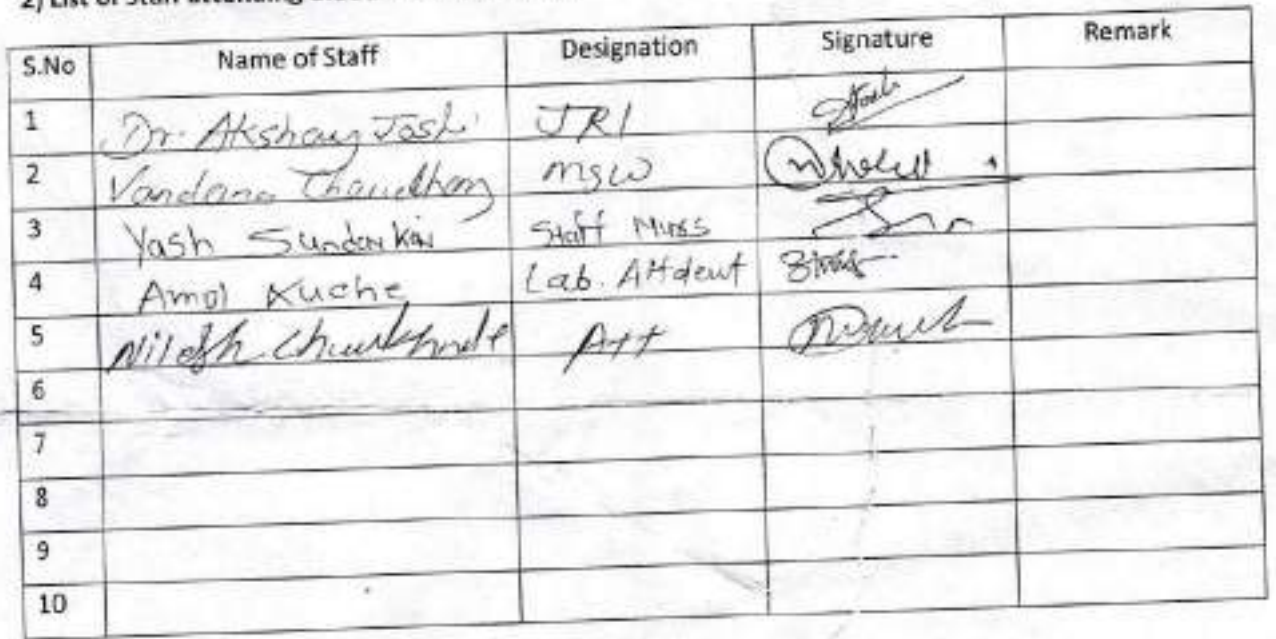 2) List of Staff attending
S.No Name of Staff Designation Signature Remark
1 Dr. Akshay Joshi JR1
2 Vandana Choudhary MSW
3 Yash Sundarkar Staff Nurss
4 Amol Kuche Lab. Attdent
5 Nilesh Att
6
7
8
9
10